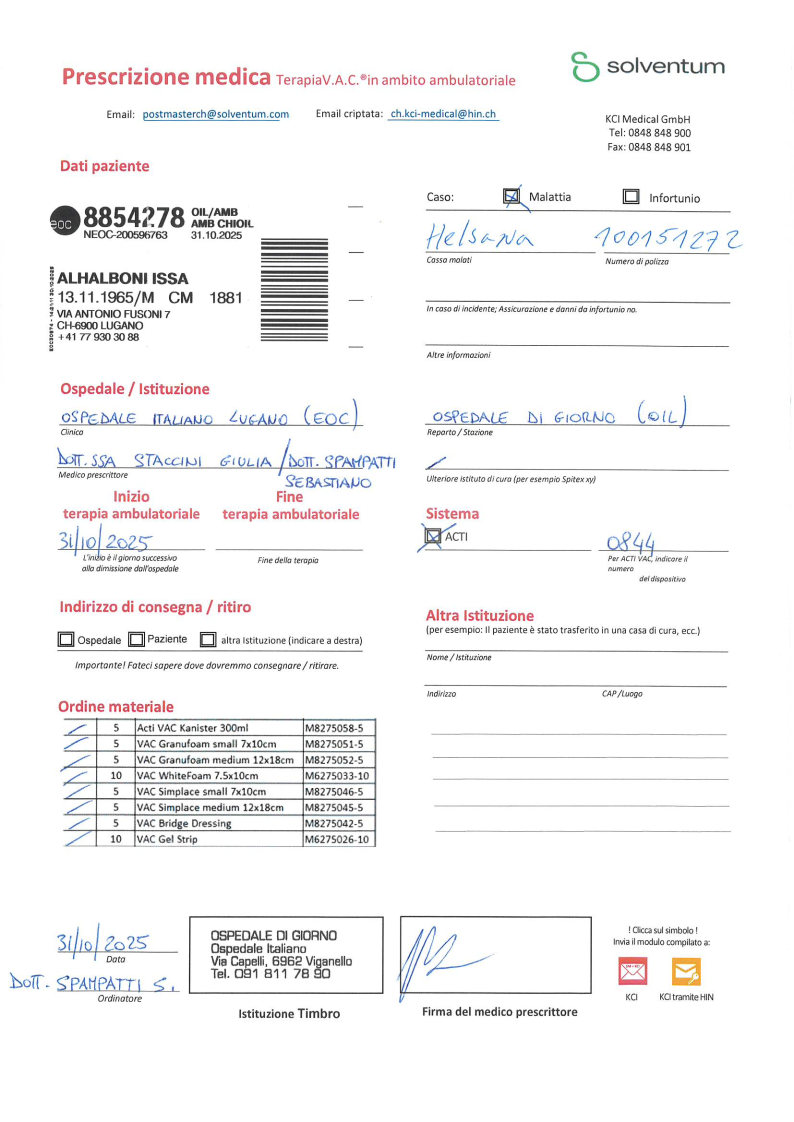 Prescrizione medica TerapiaV.A.C.®in ambito ambulatoriale
solventum
Email: postmasterch@solventum.com Email criptata: ch.kci-medical@hin.ch
KCI Medical GmbH
Tel: 0848 848 900
Fax: 0848 848 901
Dati paziente
eoc 8854278 OIL/AMB
AMB CHIOIL
NEOC-200596763 31.10.2025
ALHALBONI ISSA
13.11.1965/M CM 1881
VIA ANTONIO FUSONI 7
CH-6900 LUGANO
+41 77 930 30 88
Caso: Malattia Infortunio
Helsana 100151272
Cassa malati Numero di polizza
In caso di incidente; Assicurazione e danni da infortunio no.
Altre informazioni
Ospedale / Istituzione
OSPEDALE ITALIANO LUGANO (EOC)
Clinica
OSPEDALE DI GIORNO (OIL)
Reparto / Stazione
DOTT.SSA STACCINI GIULIA / DOTT. SPAMPATTI
SEBASTIANO
Medico prescrittore
Ulteriore istituto di cura (per esempio Spitex xy)
Inizio
terapia ambulatoriale
Fine
terapia ambulatoriale
31/10/2025
L'inizio è il giorno successivo
alla dimissione dall'ospedale
Fine della terapia
Sistema
ACTI
0844
Per ACTI VAC, indicare il
numero
del dispositivo
Indirizzo di consegna / ritiro
Ospedale Paziente altra Istituzione (indicare a destra)
Importante! Fateci sapere dove dovremmo consegnare / ritirare.
Altra Istituzione
(per esempio: Il paziente è stato trasferito in una casa di cura, ecc.)
Nome / Istituzione
Indirizzo CAP /Luogo
Ordine materiale
5 Acti VAC Kanister 300ml M8275058-5
5 VAC Granufoam small 7x10cm M8275051-5
5 VAC Granufoam medium 12x18cm M8275052-5
10 VAC WhiteFoam 7.5x10cm M6275033-10
5 VAC Simplace small 7x10cm M8275046-5
5 VAC Simplace medium 12x18cm M8275045-5
5 VAC Bridge Dressing M8275042-5
10 VAC Gel Strip M6275026-10
31/10/2025
Data
DOTT. SPAMPATTI S.
Ordinatore
OSPEDALE DI GIORNO
Ospedale Italiano
Via Capelli, 6962 Viganello
Tel. 091 811 78 90
Istituzione Timbro
Firma del medico prescrittore
! Clicca sul simbolo !
Invia il modulo compilato a:
KCI KCI tramite HIN